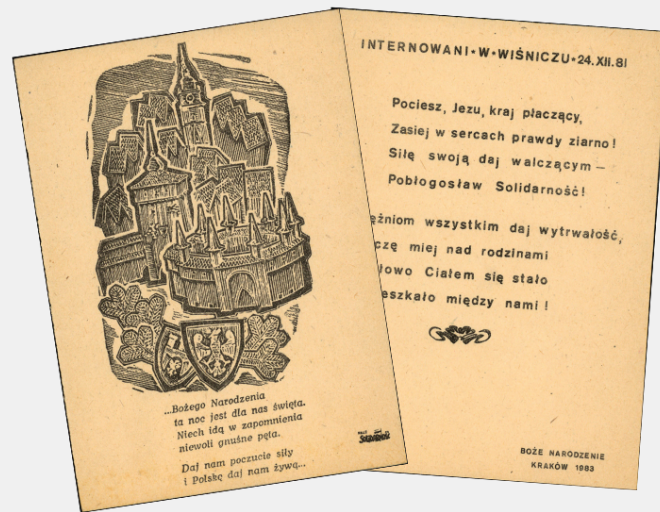 ...Bożego Narodzenia
ta noc jest dla nas święta.
Niech idą w zapomnienia
niewoli gnuśne pęta.
Daj nam poczucie siły
i Polskę daj nam żywą...
Solidarność
INTERNOWANI•W•WIŚNICZU•24.XII.81
Pociesz, Jezu, kraj płaczący,
Zasiej w sercach prawdy ziarno!
Siłę swoją daj walczącym —
Pobłogosław Solidarność!
ęźniom wszystkim daj wytrwałość,
czę miej nad rodzinami
łowo Ciałem się stało
eszkało między nami!
BOŻE NARODZENIE
KRAKÓW 1983